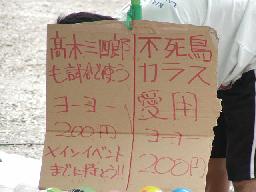 高木三四郎
も試合で使う
ヨーヨー
200円
メインイベント
までに待とう!!
不死鳥
カラス
愛用
ヨーヨー
200円